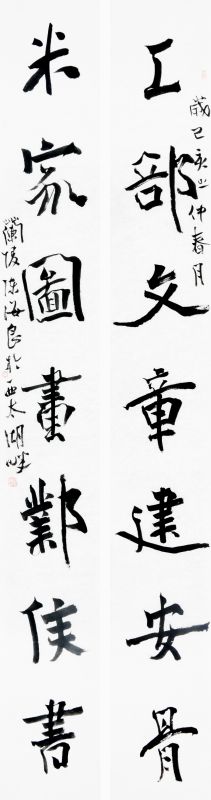 工部文章建安骨
歲己亥之仲春月
米家圖畫鄴侯書
蘭陵陳海良於西太湖畔